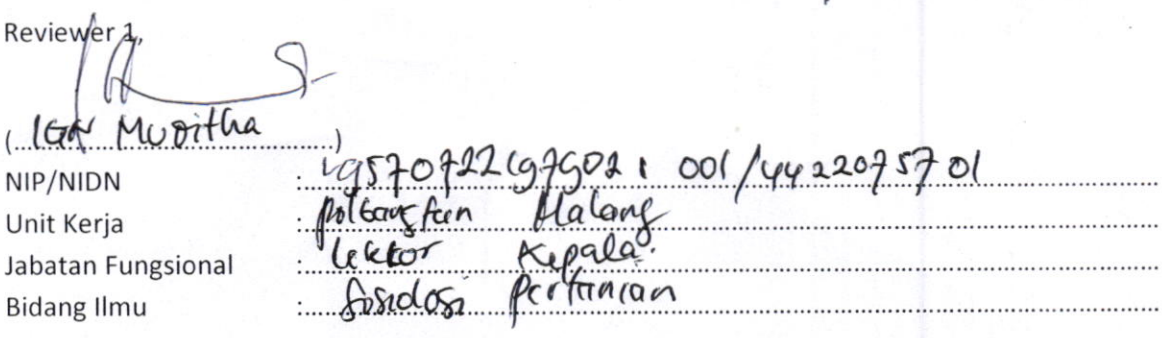 Reviewer 1,
(IGN Muditha)
NIP/NIDN : 19570722197902 1 001/4422075701
Unit Kerja : Polbangtan Malang
Jabatan Fungsional : Lektor Kepala
Bidang Ilmu : Sosiologi Pertanian